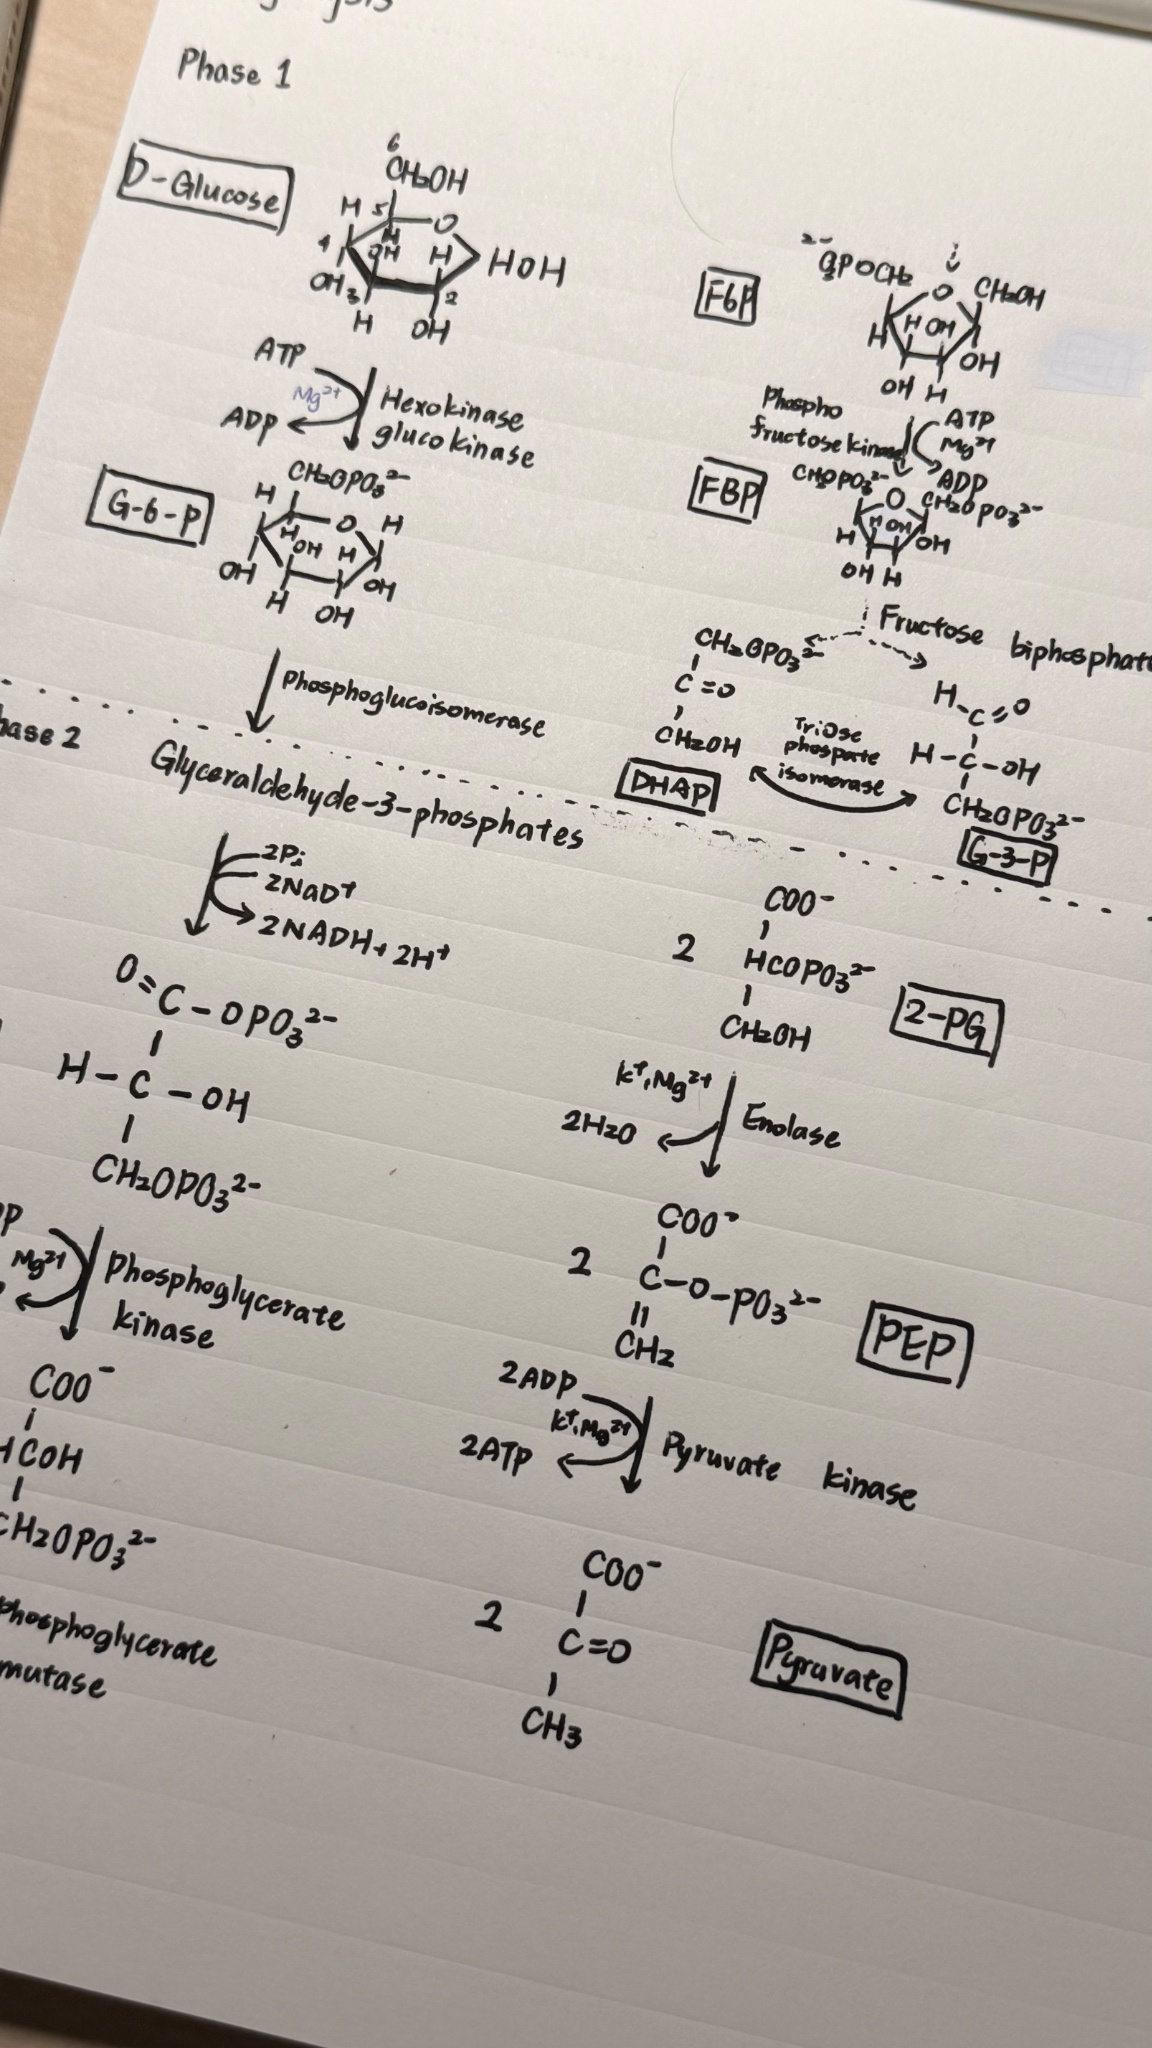 Phase 1
D-Glucose
6
CH2OH
H 5 O
H
4 OH H HOH
OH 3 2
H OH
ATP
Mg2+
ADP
Hexokinase
glucokinase
G-6-P
CH2OPO3 2-
H O H
H
OH H
OH OH
H OH
Phosphoglucoisomerase
F6P
2-
O3POCH2 O CH2OH
H H OH OH
OH H
Phospho
fructose kinase
ATP
Mg2+
ADP
FBP
CH2OPO3 2- O CH2OPO3 2-
H H OH OH
OH H
Fructose biphosphat
CH2OPO3 2-
C=O
CH2OH
DHAP
Triose
phospate
isomerase
H C=O
H-C-OH
CH2OPO3 2-
G-3-P
hase 2
Glyceraldehyde-3-phosphates
2Pi
2NaD+
2NADH+2H+
O=C-OPO3 2-
H-C-OH
CH2OPO3 2-
Mg2+
Phosphoglycerate
kinase
COO-
HCOH
CH2OPO3 2-
Phosphoglycerate
mutase
COO-
2 HCOPO3 2-
CH2OH
2-PG
K+,Mg2+
2H2O
Enolase
COO-
2 C-O-PO3 2-
CH2
PEP
2ADP
K+,Mg2+
2ATP
Pyruvate kinase
COO-
2 C=O
CH3
Pyruvate